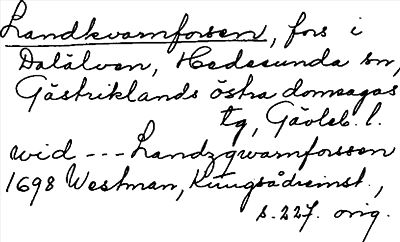 Landkvarnforsen, fors i
Dalälven, Hedesunda sn,
Gästriklands östra domsagas
tg, Gävleb. l.
wid --- Landzqwarnforssen
1698 Westman, Kungsådreinst.,
s. 227. orig.